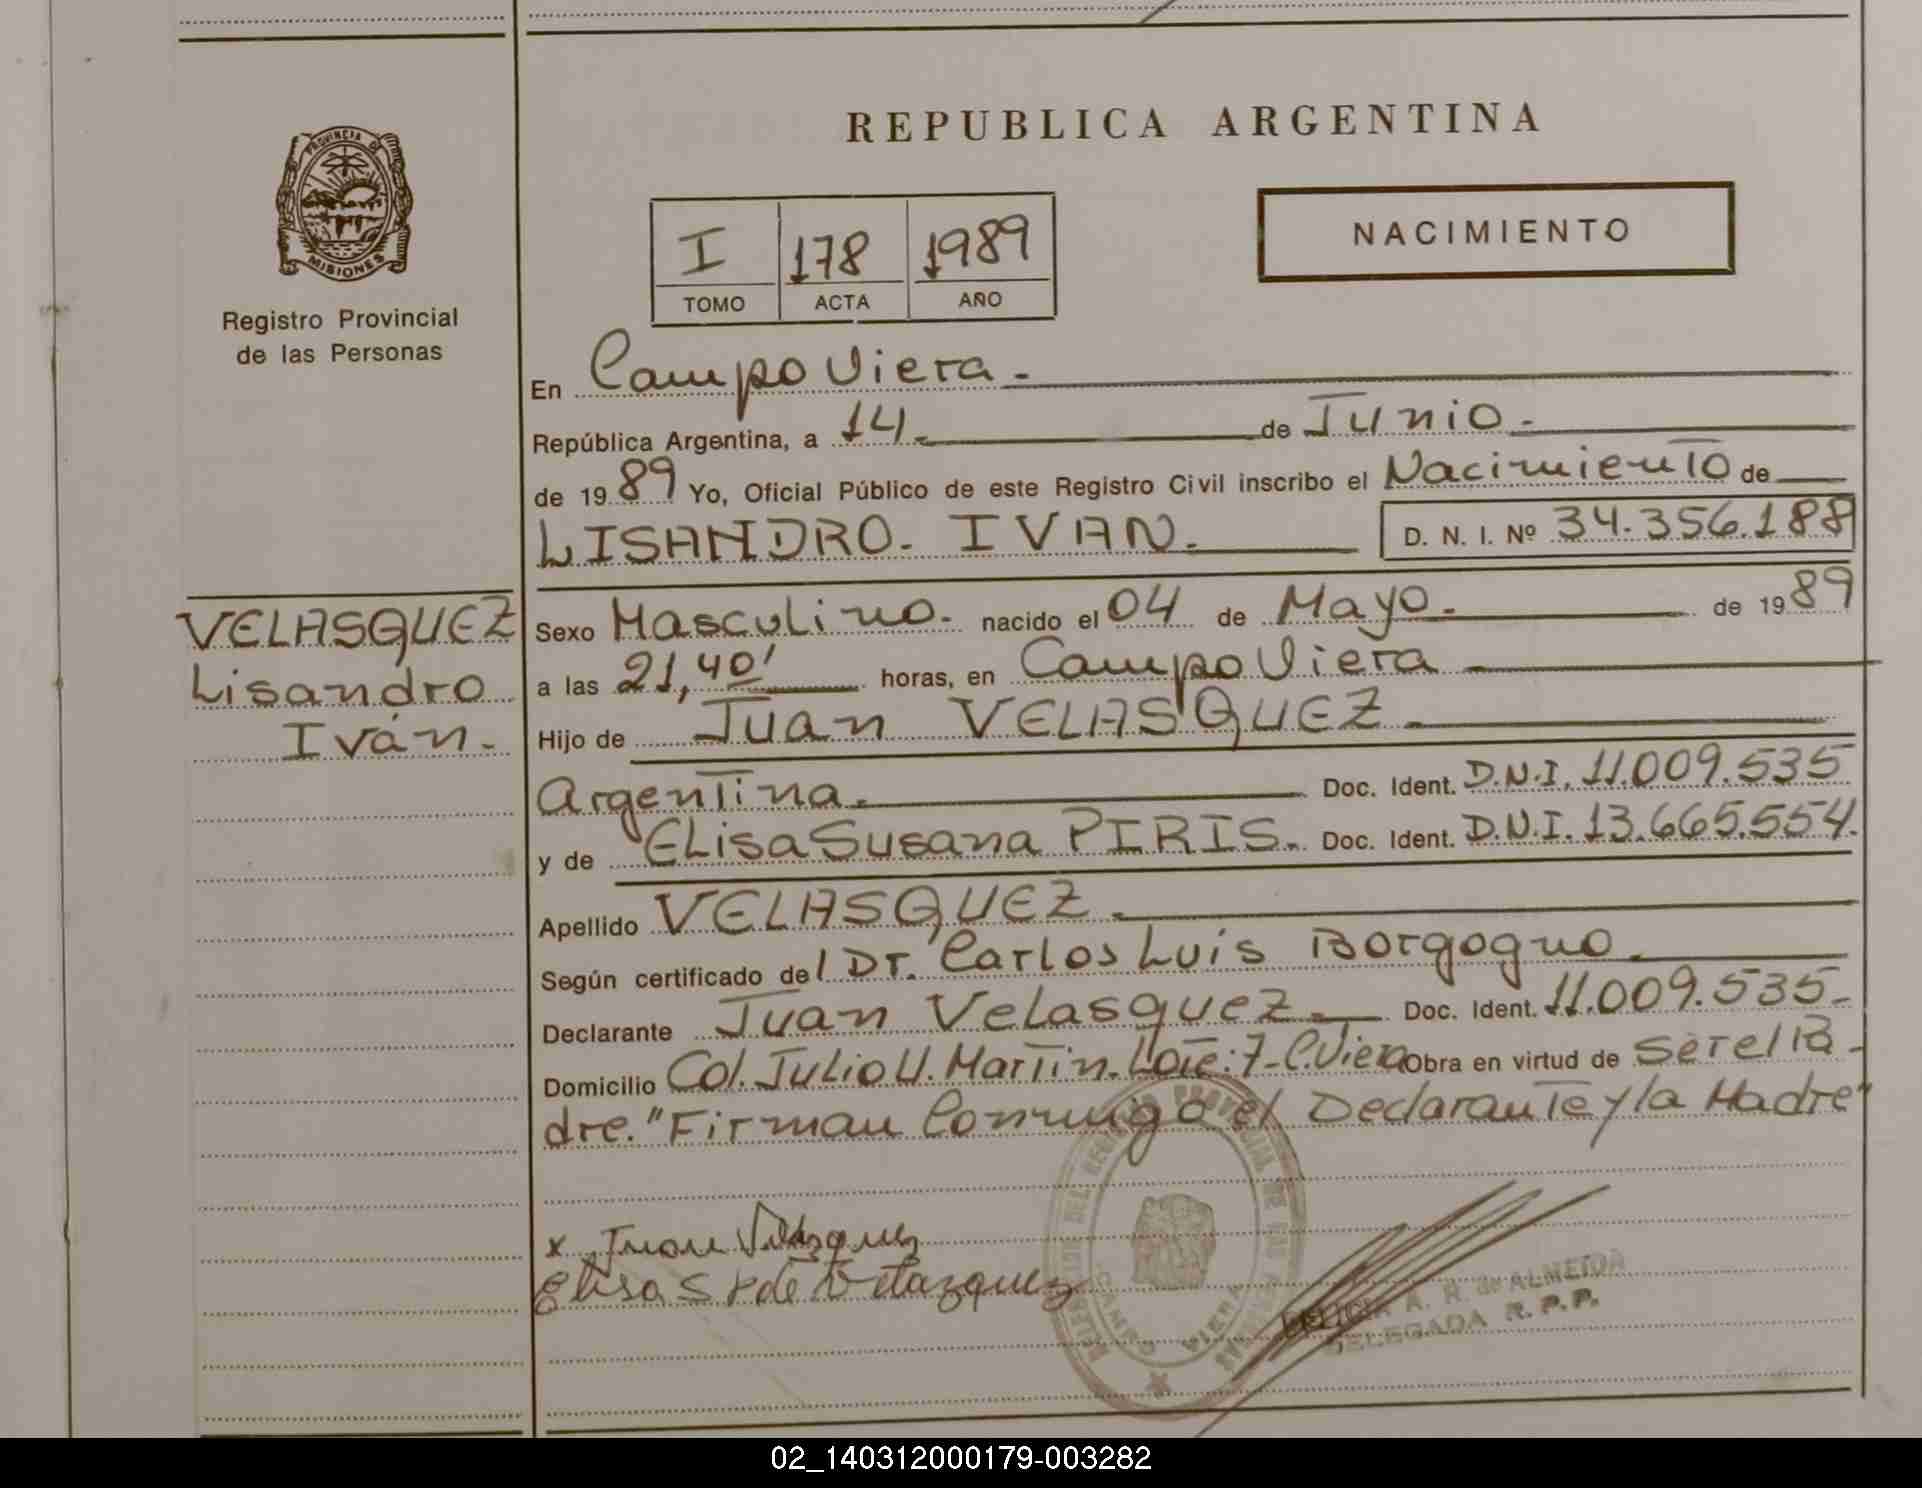 REPUBLICA ARGENTINA
PROVINCIA DE
MISIONES
Registro Provincial
de las Personas
I 178 1989
TOMO ACTA AÑO
NACIMIENTO
En Campo Viera.
República Argentina, a 14. de Junio.
de 1989 Yo, Oficial Público de este Registro Civil inscribo el Nacimiento de
LISANDRO. IVAN. D. N. I. Nº 34.356.188
VELASQUEZ
Lisandro
Iván.
Sexo Masculino. nacido el 04 de Mayo. de 1989
a las 21,40' horas, en Campo Viera
Hijo de Juan VELASQUEZ.
Argentina. Doc. Ident. D.N.I. 11.009.535
y de Elisa Susana PIRIS. Doc. Ident. D.N.I. 13.665.554.
Apellido VELASQUEZ.
Según certificado del Dr. Carlos Luis Borgogno.
Declarante Juan Velasquez. Doc. Ident. 11.009.535-
Domicilio Col. Julio U. Martin. Lote: 7-C. Viera Obra en virtud de ser el Pa-
dre. "Firman Conmigo el Declarante y la Madre"
x Juan Velazquez
Elisa S P de Velazquez
CAMPO VIERA
DELICIA A. R. de ALMEIDA
DELEGADA R.P.P.
02_140312000179-003282